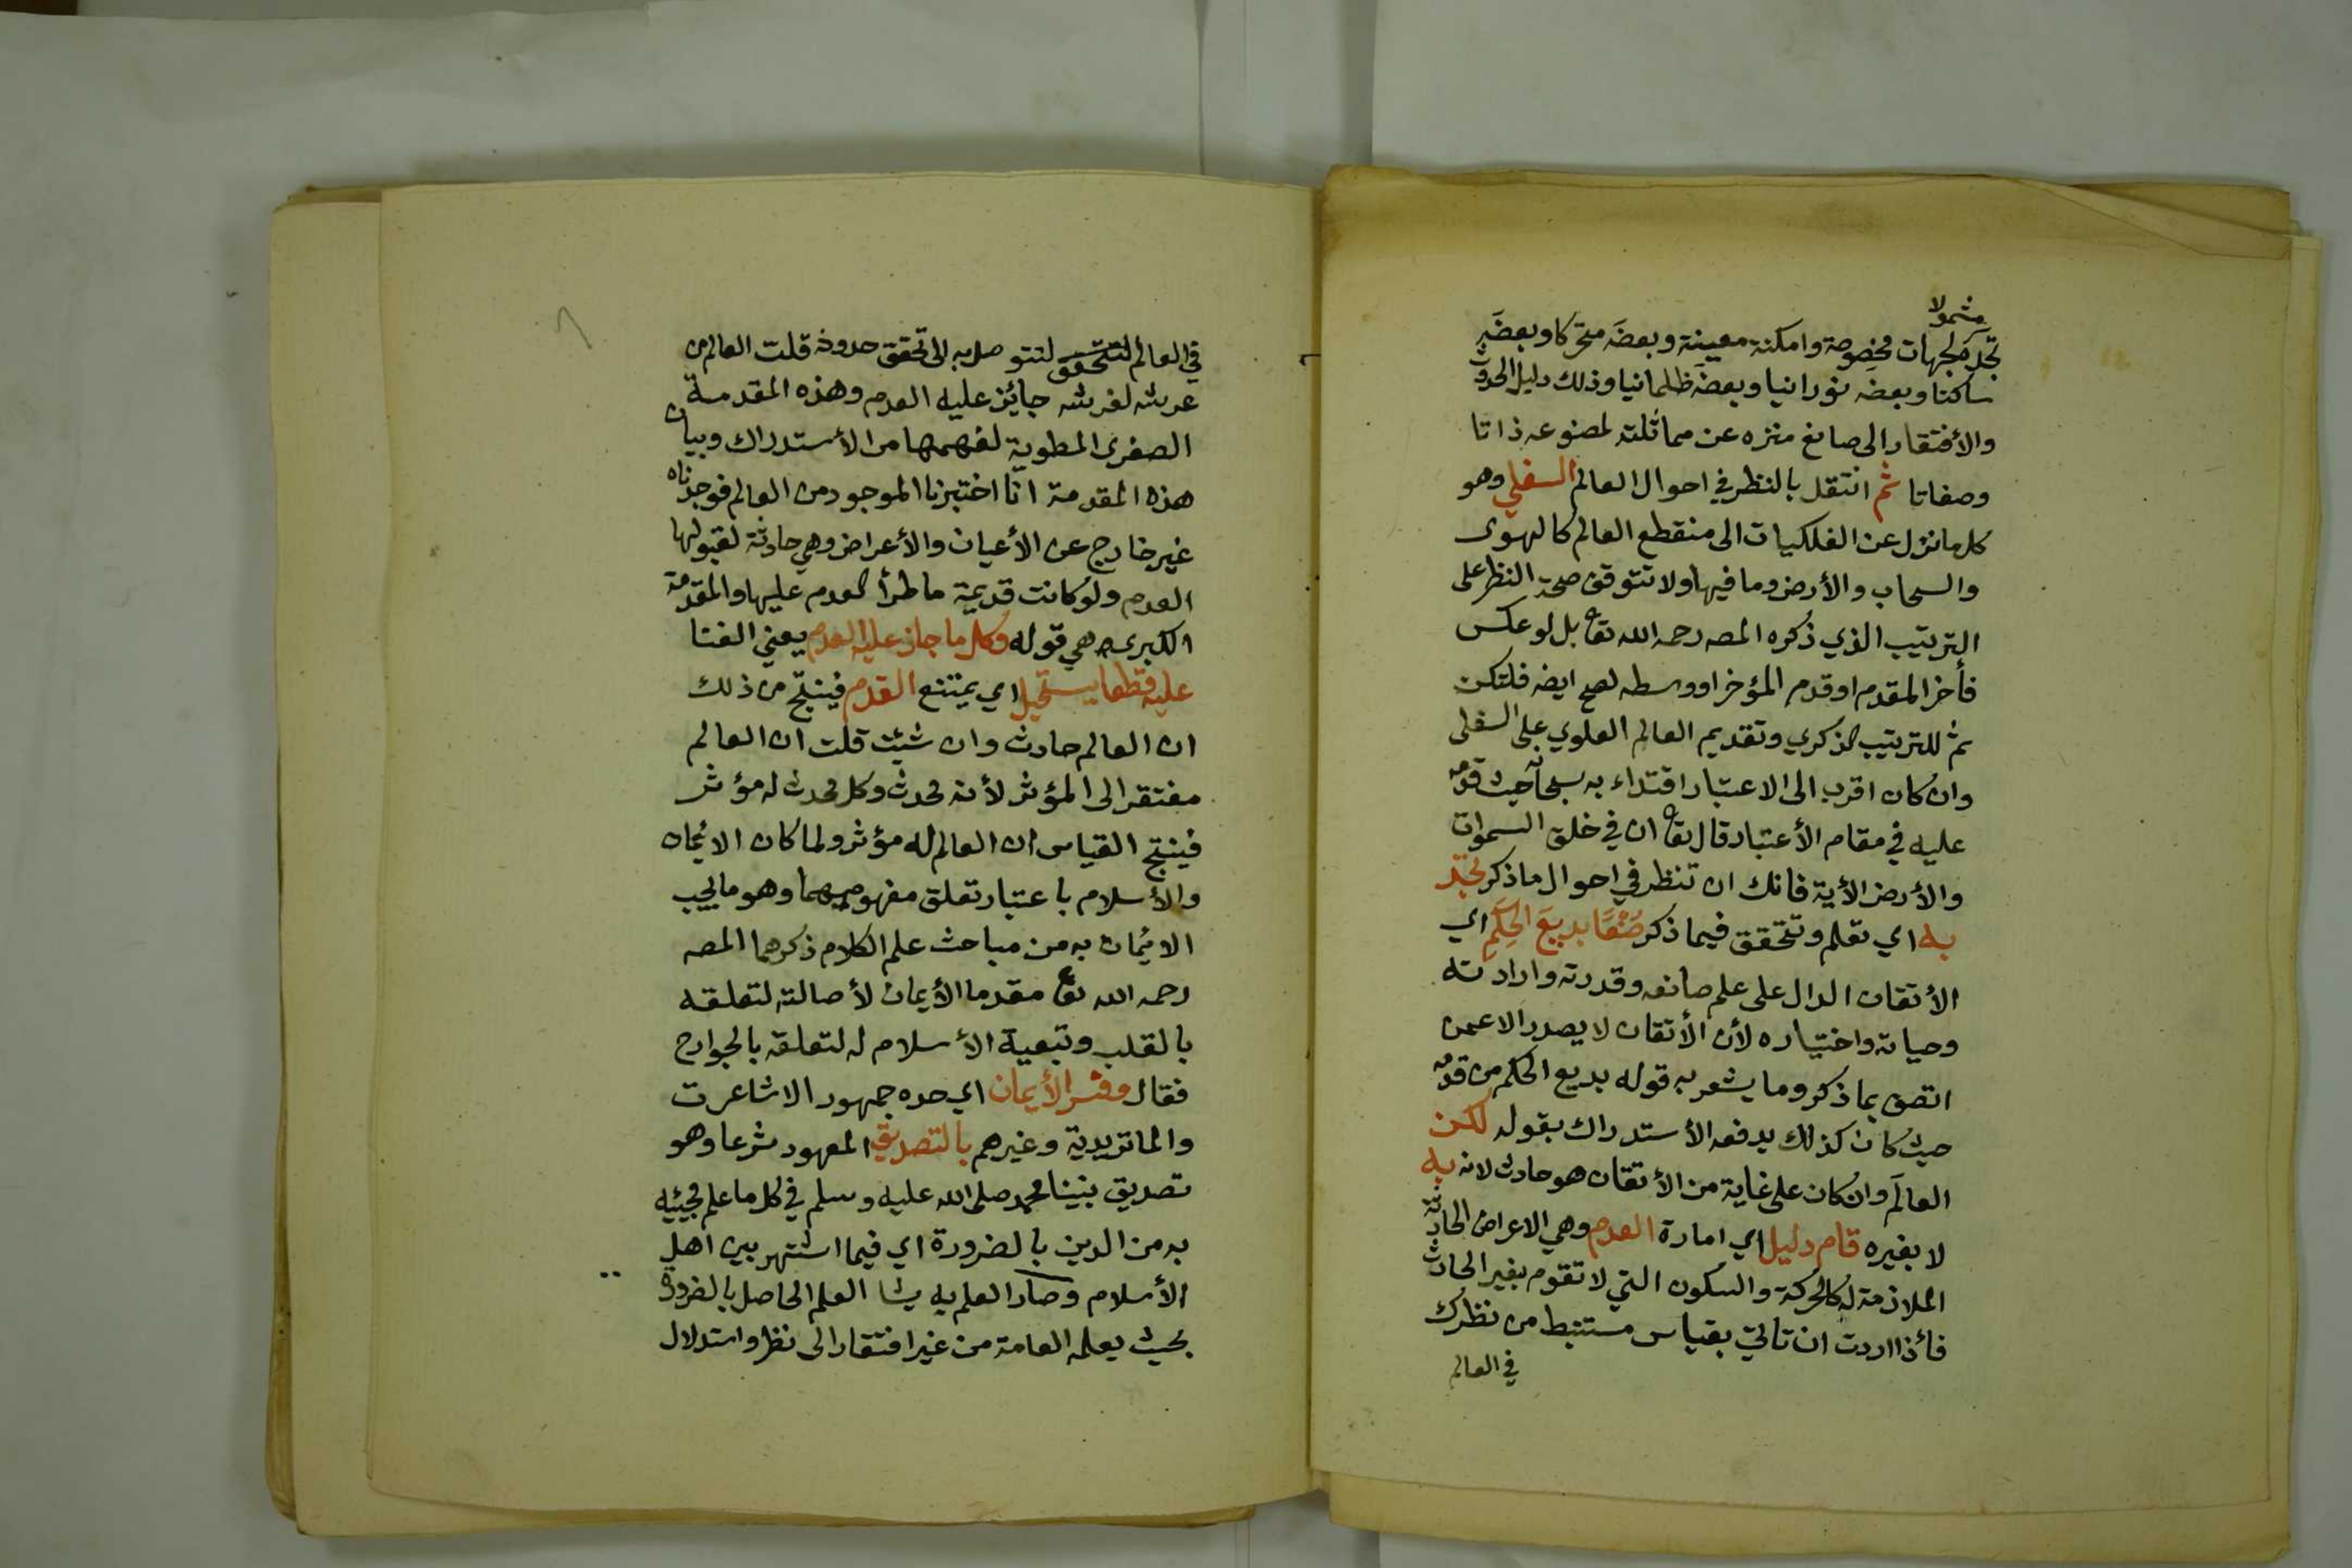 مشمولا
تجده لجهات مخصوصة وامكنة معينة وبعضَه متحركا وبعضَه
ساكنا وبعضَه نورانيا وبعضَه ظلمانيا وذلك دليل الحدوث
والأفتقار الى صانع منزه عن مماثلته لمصنوعه ذاتا
وصفاتا ثم انتقل بالنظر في احوال العالم السفلي وهو
كل ما نزل عن الفلكيات الى منقطع العالم كالهوى
والسحاب والأرض وما فيها ولا تتوقف صحة النظر على
الترتيب الذي ذكره المصه رحمه الله تعا بل لو عكس
فأخر المقدم او قدم المؤخر او وسطه لصح ايضه فلتكن
ثم للترتيب الذكري وتقديم العالم العلوي على السفلى
وان كان اقرب الى الاعتبار اقتداء به سبحانه حيث قدمه
عليه في مقام الأعتبار قال تعا ان في خلق السموات
والأرض الأية فانك ان تنظر في احوال ما ذكر تجد
به اي تعلم وتتحقق فيما ذكر صُنْعًا بديعَ الحِكَمِ اي
الأتقان الدال على علم صانعه وقدرته وارادته
وحياته واختياره لأن الأتقان لا يصدر الا عمن
اتصف بما ذكر وما يشعر به قوله بديع الحكم من قدمه
حيث كان كذلك يدفعه الأستدراك بقوله لكن
العالَم وان كان على غاية من الأتقان هو حادث لانه به
لا بغيره قام دليل اي امارة العدم وهي الاعراض الحادثة
الملازمة له كالحركة والسكون التي لا تقوم بغير الحادث
فأذا اردت ان تاتي بقياس مستنبط من نظرك
في العالم
في العالم لتتحقق لتتوصل به الى تحقق حدوثه قلت العالم من
عرشه لفرشه جائز عليه العدم وهذه المقدمة
الصغرى المطوية لفهمها من الأستدراك وبيان
هذه المقدمة انّا اختبرنا الموجود من العالم فوجدناه
غير خارج عن الأعيان والأعراض وهي حادثة لقبولها
العدم ولو كانت قديمة ما طرأ العدم عليها والمقدمة
الكبرى هي قوله وكل ما جاز عليه العدم يعني الفنا
عليه قطعا يستحيل اي يمتنع القدم فينتج من ذلك
ان العالم حادث وان شئت قلت ان العالم
مفتقر الى المؤثر لأنه محدث وكل محدث له مؤثر
فينتج القياس ان العالم له مؤثر ولما كان الايمان
والأسلام باعتبار تعلق مفهوميهما وهو ما يجب
الايمان به من مباحث علم الكلام ذكرهما المصه
رحمه الله تعا مقدما الأيمان لأصالته لتعلقه
بالقلب وتبعية الأسلام له لتعلقه بالجوارح
فقال وفسر الأيمان اي حده جمهور الاشاعرت
والماتريدية وغيرهم بالتصديق المعهود شرعا وهو
تصديق نبينا محمد صلى الله عليه وسلم في كل ما علم مجيئه
به من الدين بالضرورة اي فيما اشتهر بين اهل
الأسلام وصار العلم به يشا العلم الحاصل بالضرورة
بحيث يعلمه العامة من غير افتقار الى نظر واستدلال